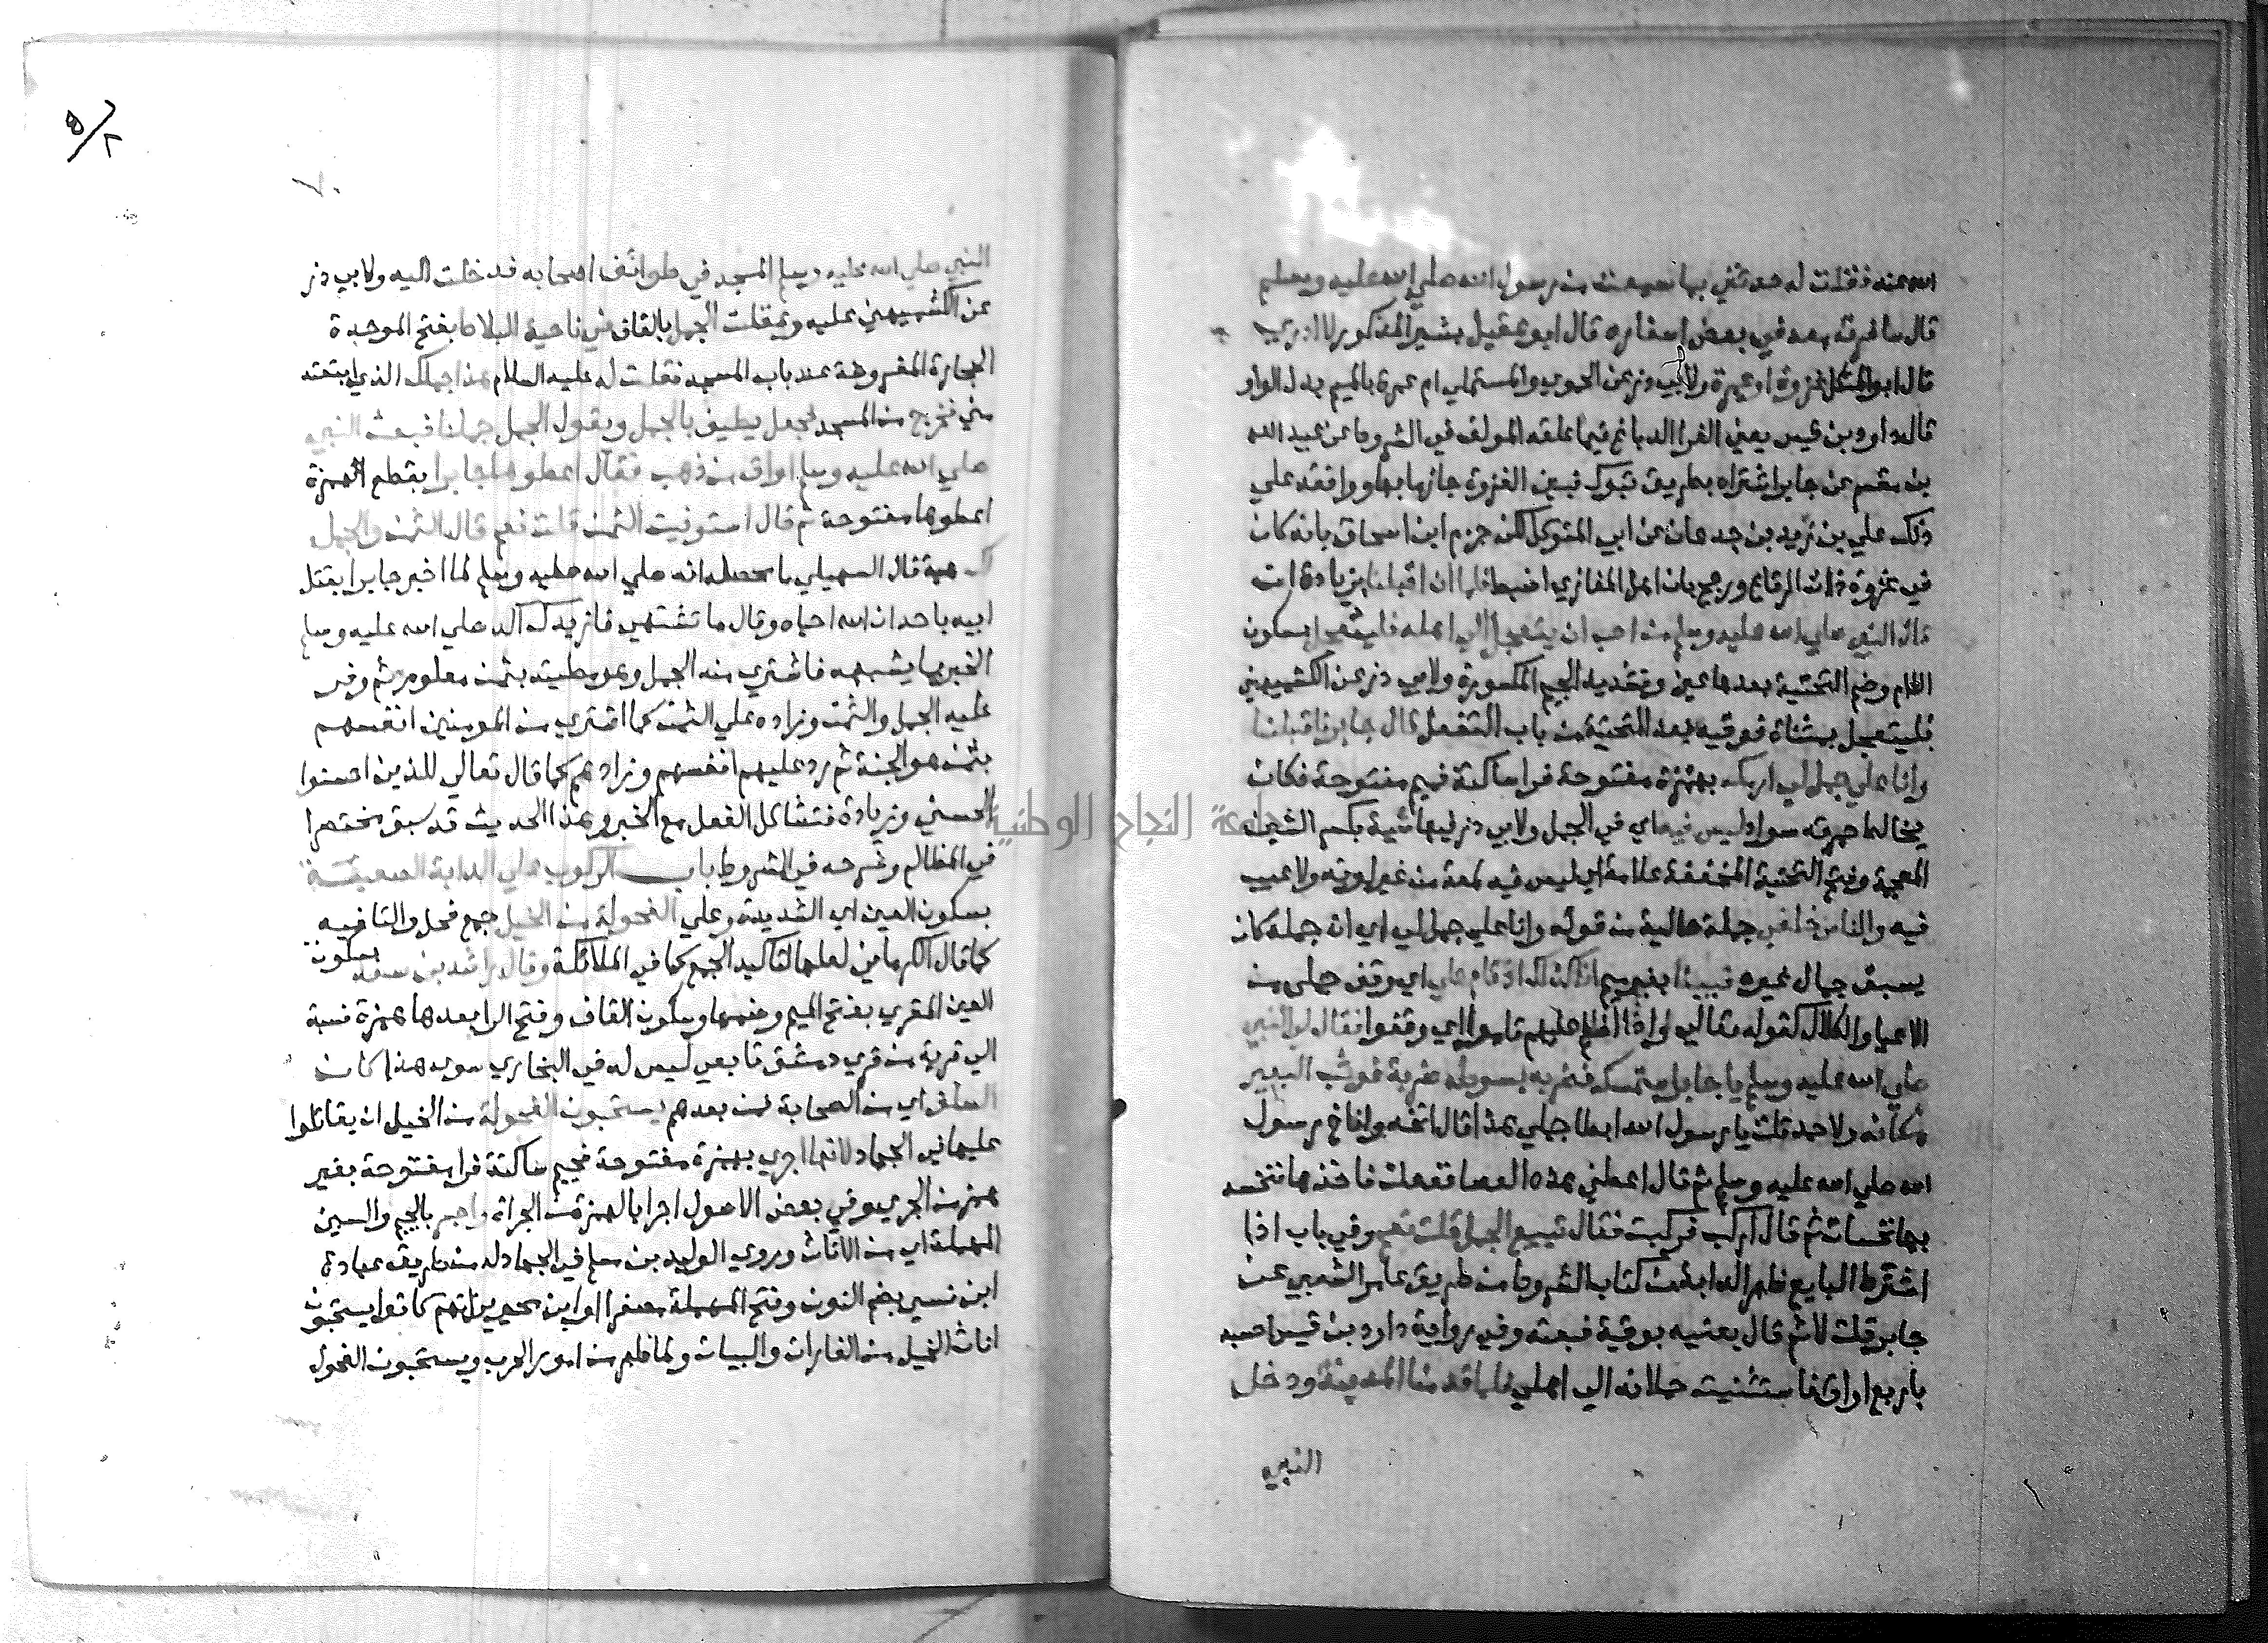 الله عنه فقلت له حدثني بما سمعت من رسول الله صلي الله عليه وسلم
قال سافرت معه في بعض اسفاره قال ابو عقيل بشير المذكور لا ادري
قال ابو المتوكل غزوة او عمرة ولابي ذر عن الحموي والمستملي ام عمرة بالميم بدل الواو
قال داود بن قيس يعني الفرا الدباغ فيما علقه المولف في الشروط عن عبيد الله
بن مقسم عن جابر اشتراه بطريق تبوك فبين الغزوة جازما بها ووافقه علي
ذلك علي بن زيد بن جدعان عن ابي المتوكل لكن جزم ابن اسحاق بانه كان
في غزوة ذات الرقاع ورجح بان اهل المغازي اضبط فلما ان اقبلنا بزيادة ان
قال النبي صلي الله عليه وسلم من احب ان يتعجل الي اهله فليعجل بسكون
اللام وضم التحتية بعدها عين وتشديد الجيم المكسورة ولابي ذر عن الكشميهني
فليتعجل بمثناة فوقيه بعد التحتية من باب التفعل قال جابر فاقبلنا
وانا علي جمل لي ارمك بهمزة مفتوحة فرا ساكنة فميم مفتوحة فكاف
يخالط حمرته سواد ليس فيه اي في الجمل ولابي ذر فيها شية بكسر الشين
المعجمة وفتح التحتية المخففة علامة اي ليس فيه لمعة من غير لونه ولا عيب
فيه والناس خلفي جملة حالية من قوله وانا علي جمل لي اي ان جمله كان
يسبق جمال غيره فبينا بغير ميم انا كذلك اذ قام علي اي وقف جملي من
الاعيا والكلال كقوله تعالي واذا اظلم عليهم قاموا اي وقفوا فقال لي النبي
صلي الله عليه وسلم يا جابر استمسك فضربه بسوطه ضربة فوثب البعير
مكانه ولاحمد قلت يا رسول الله ابطا جملي هذا قال انخه واناخ رسول
الله صلي الله عليه وسلم ثم قال اعطني هذه العصا ففعلت فاخذها فنخسه
بها نخسات ثم قال اركب فركبت فقال تبيع الجمل قلت نعم وفي باب اذا
اشترط البايع ظهر الدابة من كتاب الشروط من طريق عامر الشعبي عن
جابر قلت لا ثم قال بعنيه بوقية فبعته وفي رواية داود بن قيس احسبه
باربع اواق فاستثنيت حملانه الي اهلي فلما قدمنا المدينة ودخل
النبي
٧٠
النبي صلي الله عليه وسلم المسجد في طوائف اصحابه فدخلت اليه ولابي ذر
عن الكشميهني عليه وعقلت الجمل بالقاف في ناحية البلاط بفتح الموحدة
الحجارة المفروشة عند باب المسجد فقلت له عليه السلام هذا جملك الذي ابتعته
مني فخرج من المسجد فجعل يطيف بالجمل ويقول الجمل جملنا فبعث النبي
صلي الله عليه وسلم اواق من ذهب فقال اعطوها جابرا بقطع الهمزة
اعطوها مفتوحة ثم قال استوفيت الثمن قلت نعم قال الثمن والجمل
لك هبة قال السهيلي ما محصله انه صلي الله عليه وسلم لما اخبر جابرا بقتل
ابيه باحد ان الله احياه وقال ما تشتهي فازيدك اكد صلي الله عليه وسلم
الخبر بما يشبهه فاشتري منه الجمل وهو مطيته بثمن معلوم ثم وفر
عليه الجمل والثمن وزاده علي الثمن كما اشتري من المومنين انفسهم
بثمن هو الجنة ثم رد عليهم انفسهم وزادهم كما قال تعالي للذين احسنوا
الحسني وزيادة فتشاكل الفعل مع الخبر وهذا الحديث قد سبق مختصرا
في المظالم وشرحه في الشروط باب الركوب علي الدابة الصعبة
بسكون العين اي الشديدة وعلي الفحولة من الخيل جمع فحل والتا فيه
كما قال الكرماني لعلها لتاكيد الجمع كما في الملائكة وقال راشد بن سعد بسكون
العين المقري بفتح الميم وضمها وسكون القاف وفتح الرا بعدها همزة نسبة
الي قرية من قري دمشق تابعي ليس له في البخاري سوي هذا كان
السلف اي من الصحابة فمن بعدهم يستحبون الفحولة من الخيل ان يقاتلوا
عليها في الجهاد لانها اجري بهمزة مفتوحة فجيم ساكنة فرا مفتوحة بغير
همز من الجري وفي بعض الاصول اجرا بالهمزة من الجراة واجسر بالجيم والسين
المهملة اي من الاناث وروي الوليد بن مسلم في الجهاد له من طريق عبادة
ابن نسي بضم النون وفتح المهملة مصغرا او ابن محيريز انهم كانوا يستحبون
اناث الخيل في الغارات والبيات ولما ظهر من امور الحرب ويستحبون الفحول
جامعة النجاح الوطنية